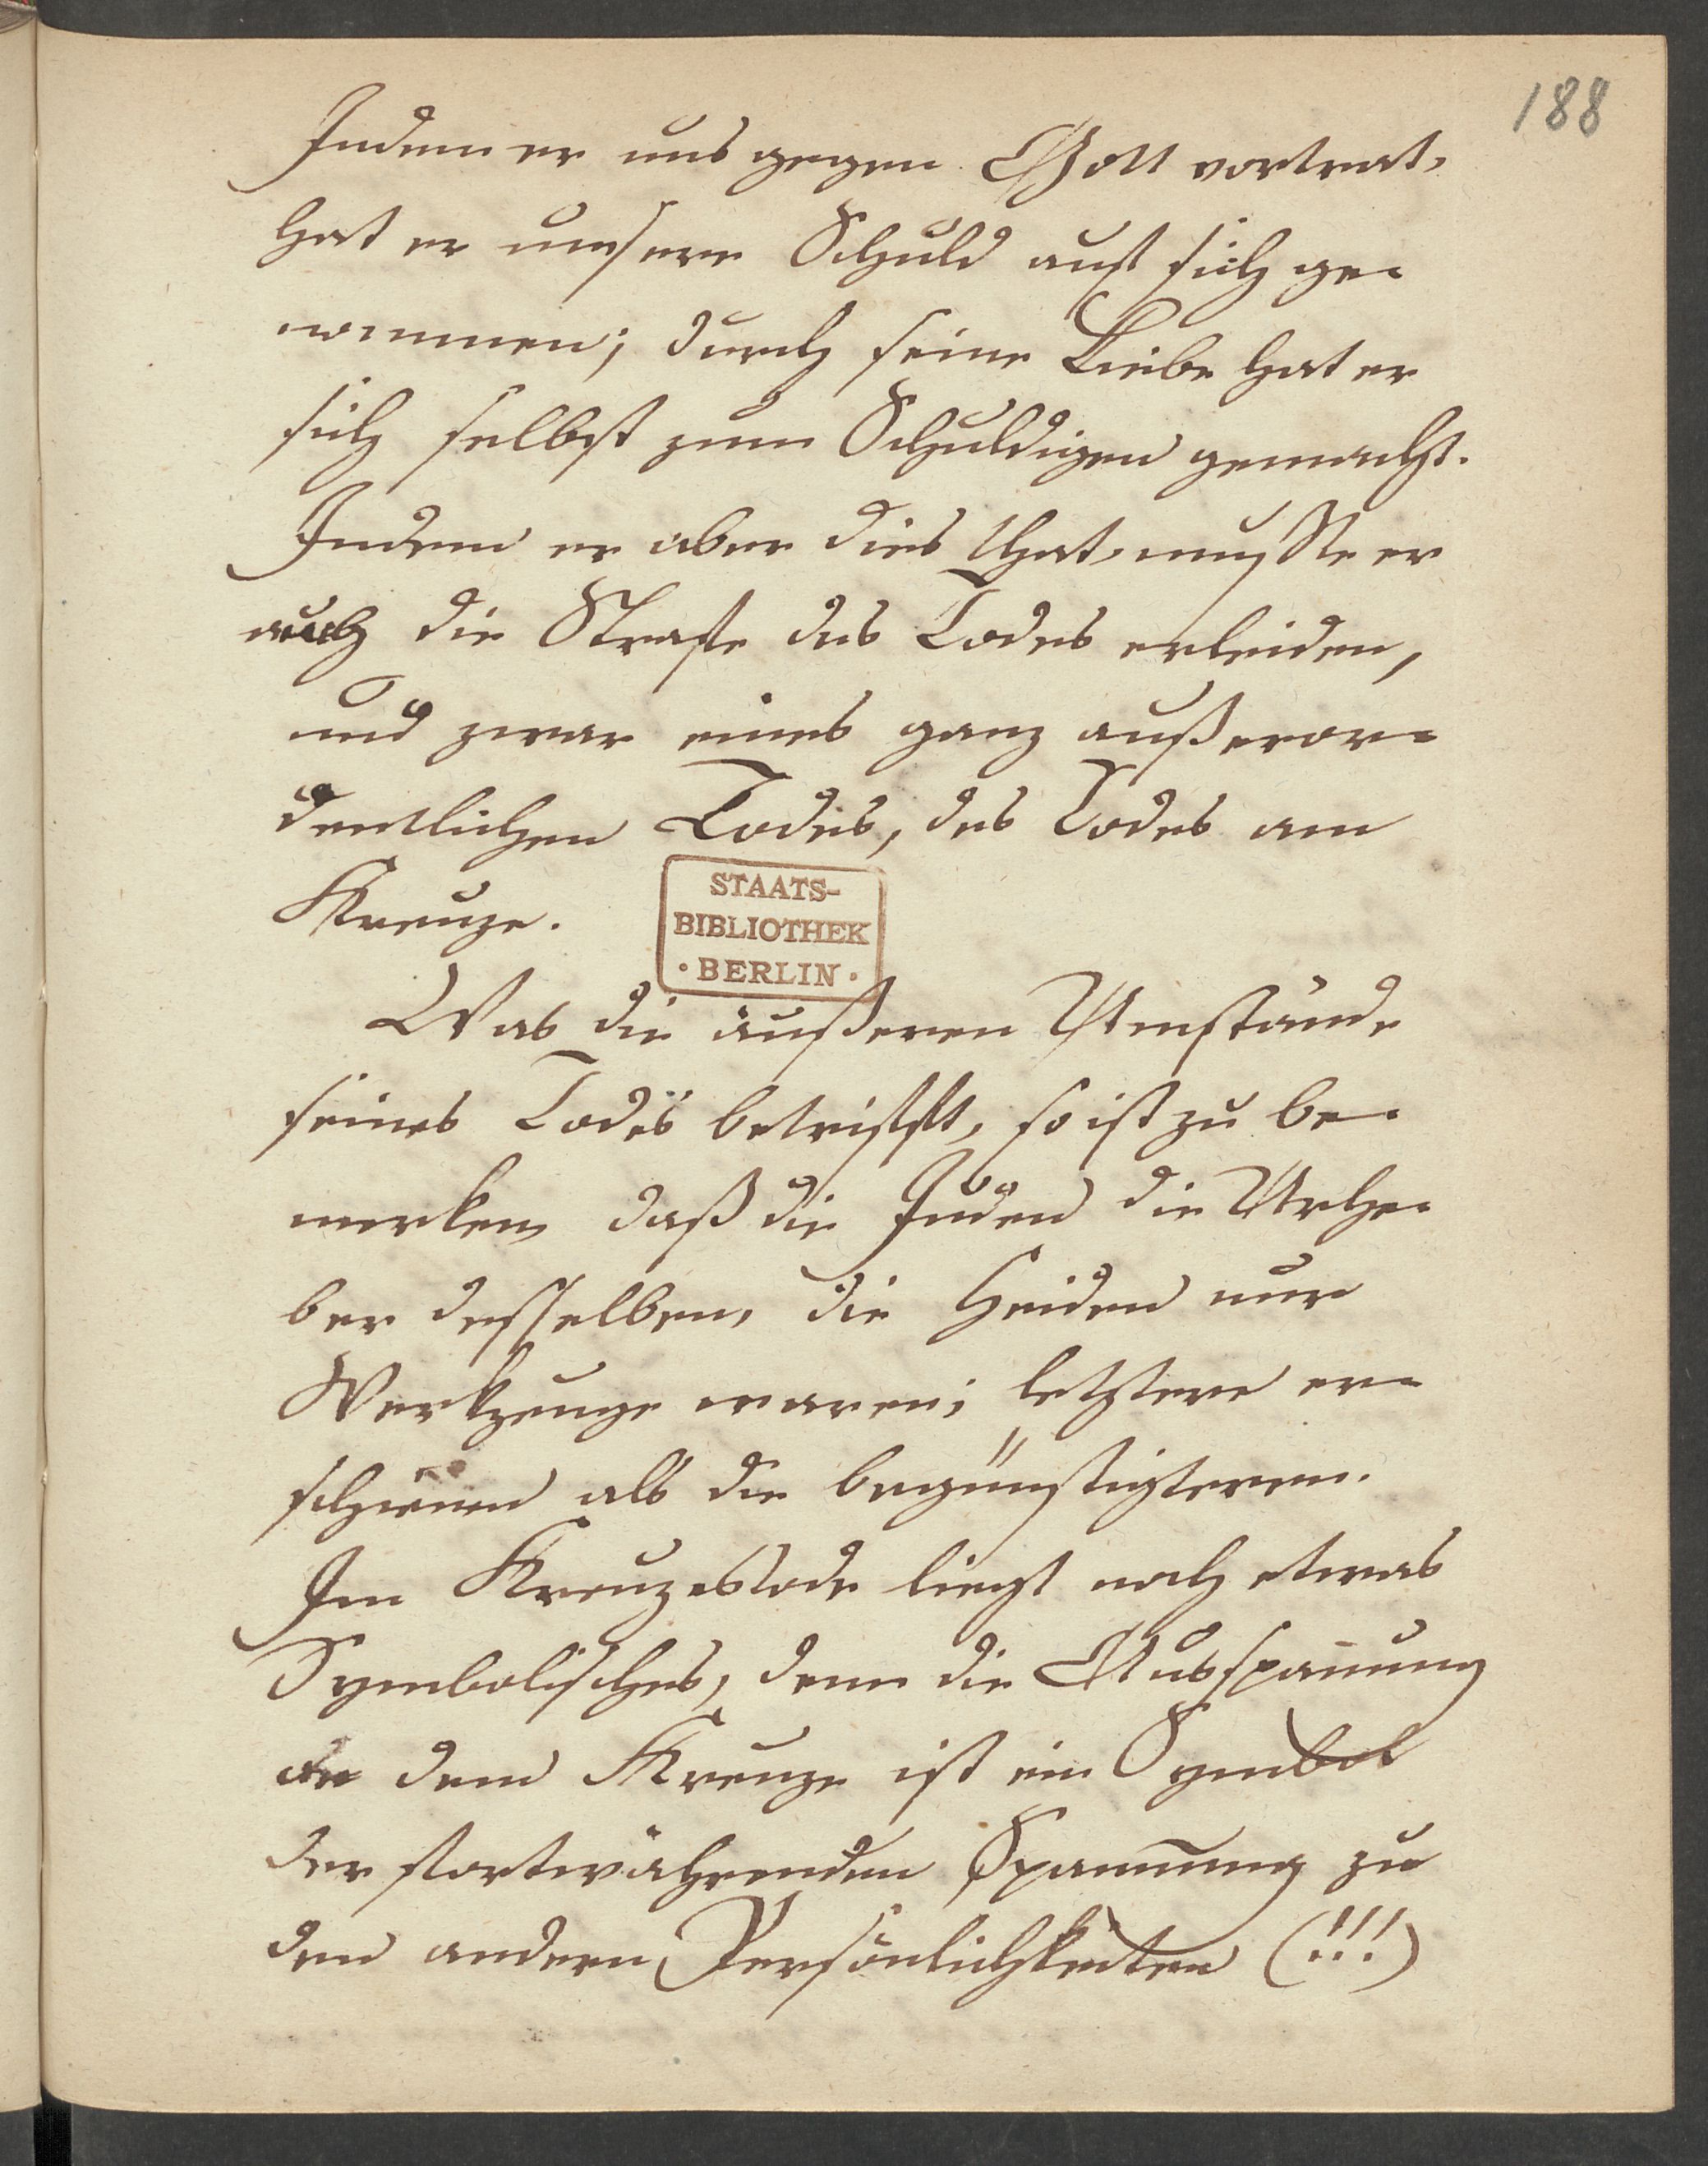 188
Indem er uns gegen Gott vertrat,
hat er unsere Schuld auf sich ge-
nommen; durch seine Liebe hat er
sich selbst zum Schuldigen gemacht.
Indem er aber dies that, mußte er
auch die Strafe des Todes erleiden,
und zwar eines ganz außeror-
dentlichen Todes, des Todes am
Kreuze.
STAATS-
BIBLIOTHEK
· BERLIN ·
Was die äußeren Umstände
seines Todes betrifft, so ist zu be-
merken, daß die Juden die Urhe-
ber desselben, die Heiden nur
Werkzeuge waren; letztere er-
schienen als die begünstigteren.
Im Kreuzestode liegt noch etwas
Symbolisches, denn die Ausspañung
an dem Kreuze ist ein Symbol
der fortwährenden Spannung zu
den andern Persönlichkeiten (!!!)